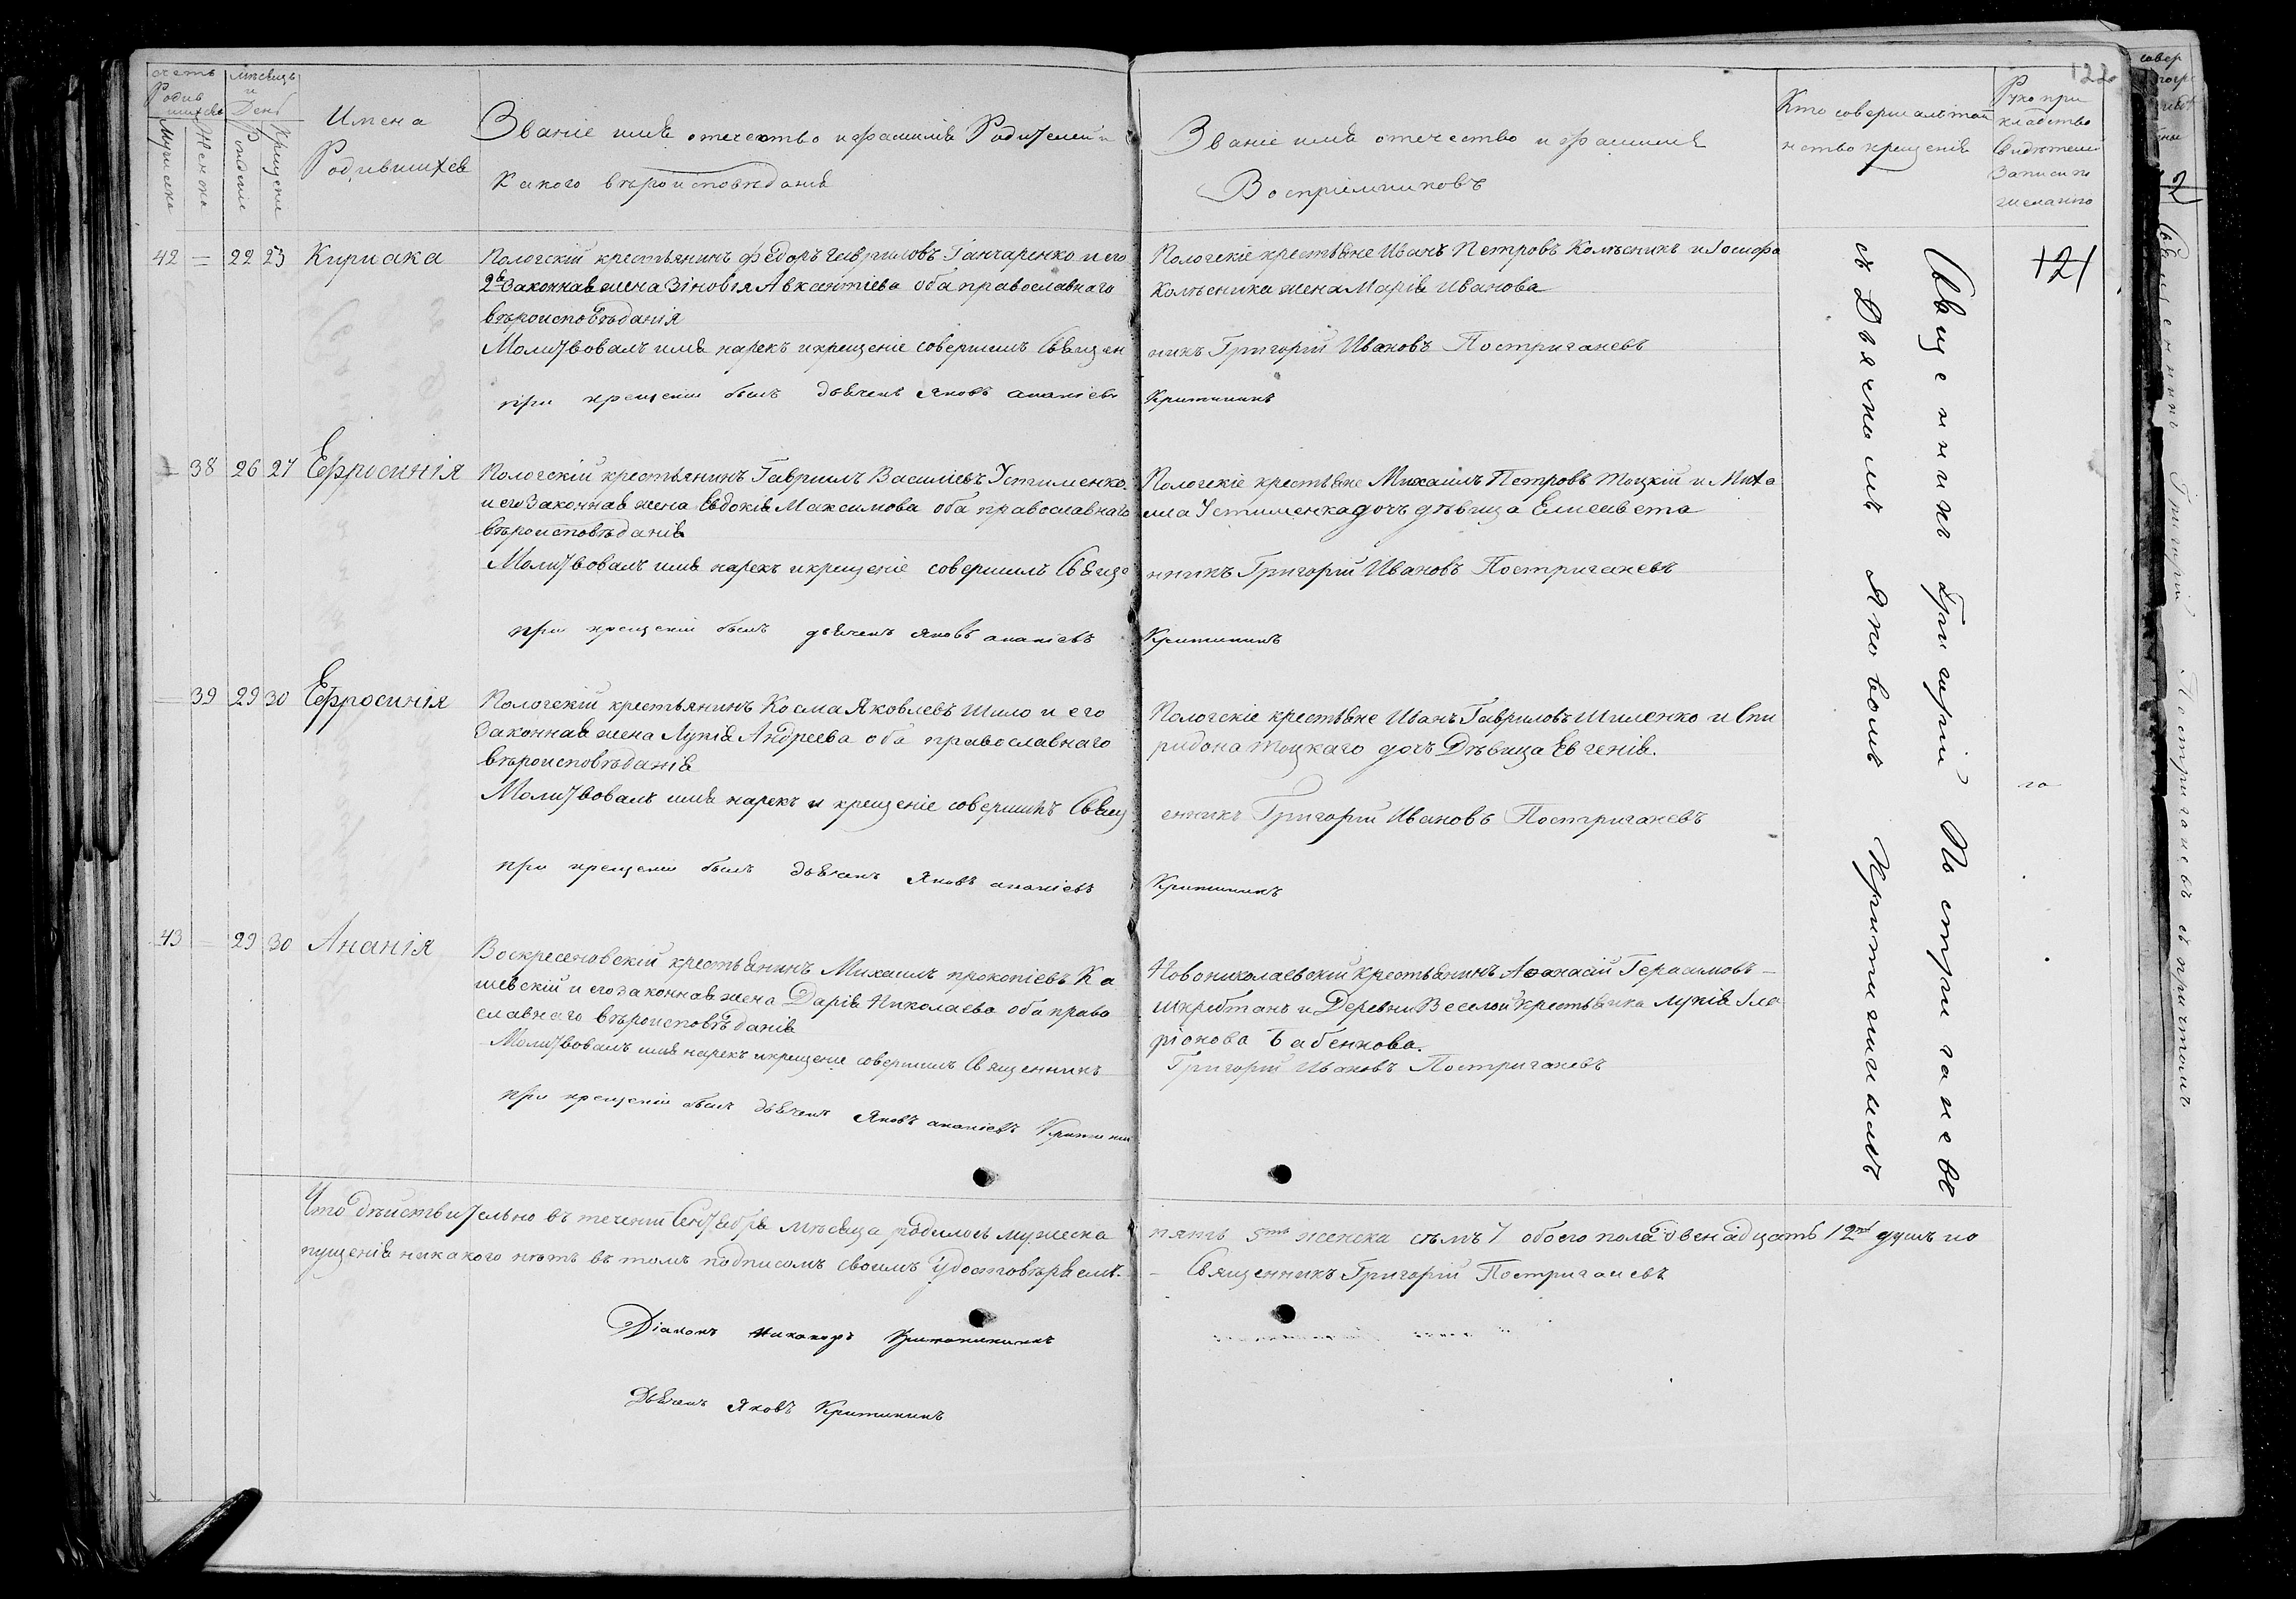 счетъ Родившихся
Мужеска
Женска
мѣсяцъ и День
Рожденія
Крещенія
Имена
Родившихся
Званіе имя отечество и фамилія Родителей и
Какого вѣроисповѣданія
Званіе имя отечество и фамилія
Воспріемниковъ
Кто совершалъ таи
нство крещенія
Руко при
кладство
Свидѣтелей
Записи по
желанію
122
42 = 22 23 Киріака
Пологскій крестьянинъ Ѳедоръ Гавриловъ Ганчаренко и его
2я Законная жена Зіновія Авксентіева оба православнаго
вѣроисповѣданія
Молитвовалъ имя нарекъ и крещеніе совершилъ Священ
при крещеніи былъ дьячекъ Яковъ ананіевъ
Пологскіе крестьяне Иванъ Петровъ Колѣсникъ и Іосифа
Колѣсника жена Марія Иванова
никъ Григорій Ивановъ Постриганевъ
Критининъ
= 38 26 27 Ефросинія
Пологскій крестьянинъ Гавриилъ Василіевъ Устименко
и его Законная жена Евдокія Максимова оба православнаго
вѣроисповѣданія
Молитвовалъ имя нарекъ и крещеніе совершилъ Свяще
при крещеніи былъ дьячекъ Яковъ ананіевъ
Пологскіе крестьяне Михаилъ Петровъ Тоцкій и Миха
ила Устименка дочь дѣвица Елисавета
нникъ Григорій Ивановъ Постриганевъ
Критининъ
39 29 30 Ефросинія
Пологскій крестьянинъ Косма Яковлевъ Шило и его
Законная жена Лукія Андреева оба православнаго
вѣроисповѣданія
Молитвовалъ имя нарекъ и крещеніе совершилъ Свящ
при крещеніи былъ дьячекъ Яковъ ананіевъ
Пологскіе крестьяне Иванъ Гавриловъ Шиленко и Спи
ридона Тоцкаго дочь Дѣвица Евгенія.
енникъ Григорій Ивановъ Постриганевъ
Критининъ
43 = 29 30 Ананія
Воскресеновскій крестьянинъ Михаилъ прокопіевъ Ка
шевскій и его законная жена Дарія Николаева оба право
славнаго вѣроисповѣданія
Молитвовалъ имя нарекъ и крещеніе совершилъ Священникъ
при крещеніи былъ дьячекъ Яковъ ананіевъ Критинин
Новониколаевскій крестьянинъ Аѳанасій Герасимовъ
Шкребтанъ и Деревни Веселой крестьянка Лукія Ила
ріонова Бабенкова.
Григорій Ивановъ Постриганевъ
Священникъ Григорій Постриганевъ
съ Дьячкомъ Яковомъ Критининымъ
121
Что дѣйствительно въ теченіи Сентября мѣсяца родилось мужеска
пять 5ть женска сѣмь 7 обоего пола двенадцать 12ть душъ по
пущенія никакого нѣтъ въ томъ подписомъ своимъ удостовѣряемъ.
Священникъ Григорій Постриганевъ
Діаконъ Никаноръ Критининъ
Дьячекъ Яковъ Критининъ
Священникъ Григорій Постриганевъ съ причтомъ